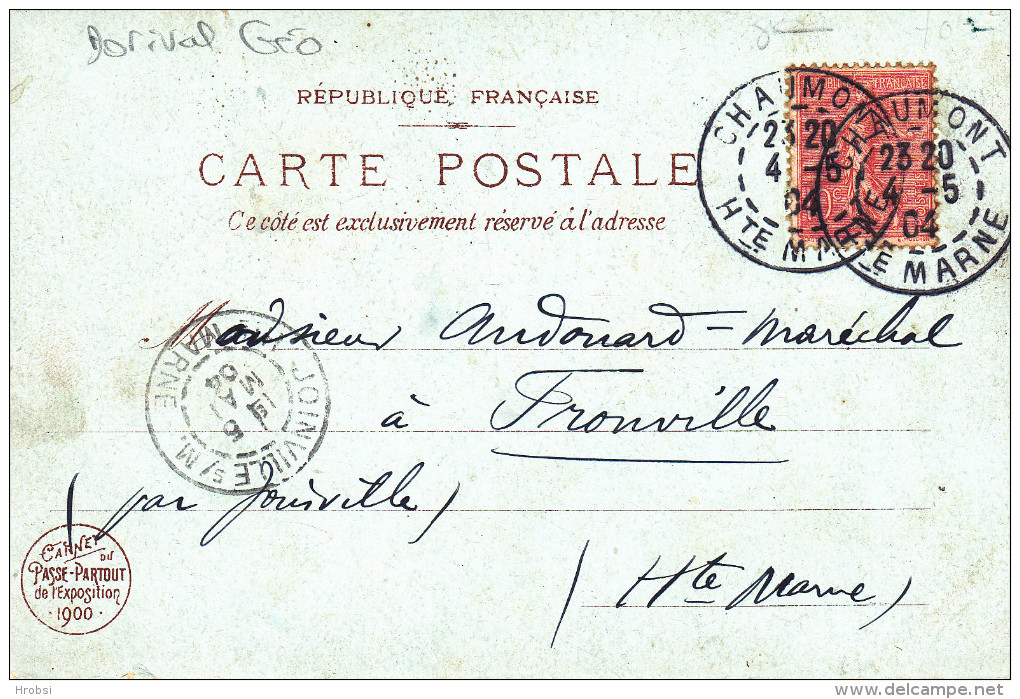 Dorival Géo
RÉPUBLIQUE FRANÇAISE
CARTE POSTALE
Ce côté est exclusivement réservé à l'adresse
CHAUMONT
23 20
4 -5
04
HTE MARNE
CHAUMONT
23 20
4 -5
04
HTE MARNE
FRANÇAISE
Monsieur Andouard-Maréchal
à Fronville
(par Joinville)
(Hte Marne)
JOINVILLE S/M.
MARNE
5
04
CARNET
DU
PASSE-PARTOUT
de l'Exposition
1900
Hrobsi
www.delcampe.net